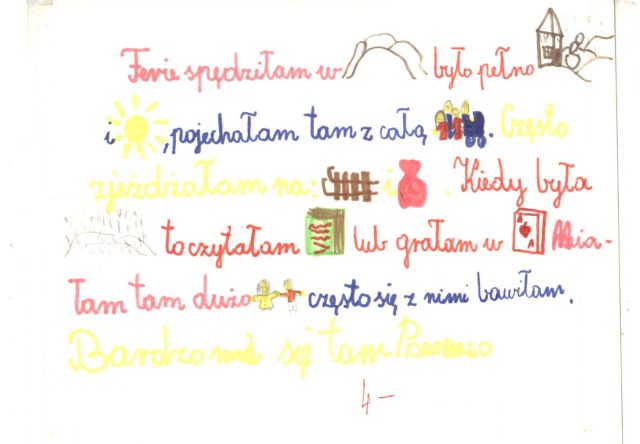 Ferie spędziłam w było pełno
i , pojechałam tam z całą . Często
zjeżdżałam na: i . Kiedy była
to czytałam lub grałam w Mia-
łam tam dużo często się z nimi bawiłam.
Bardzo się tam
4-